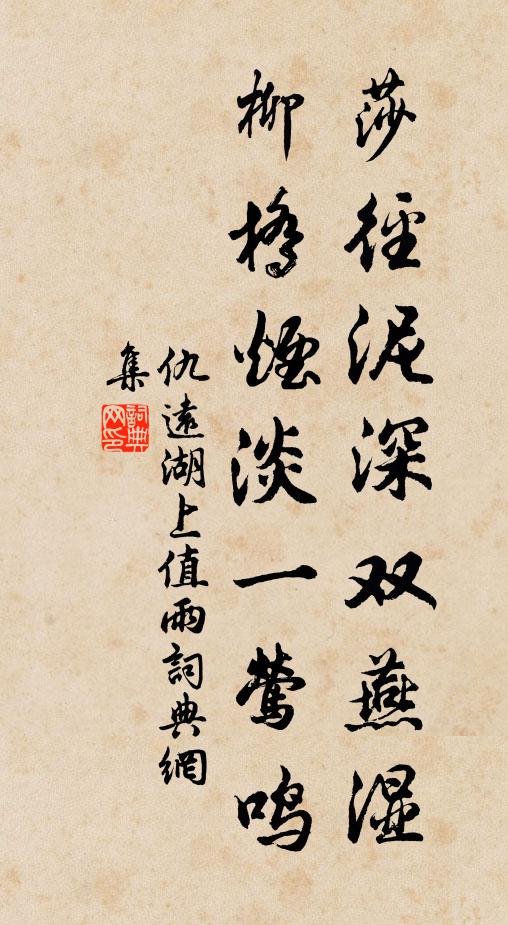 莎径泥深双燕湿
柳桥烟淡一莺鸣
仇远湖上值雨词典网
集
词典网印